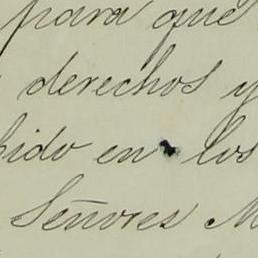 para que
derechos y
bido en los
Señores M